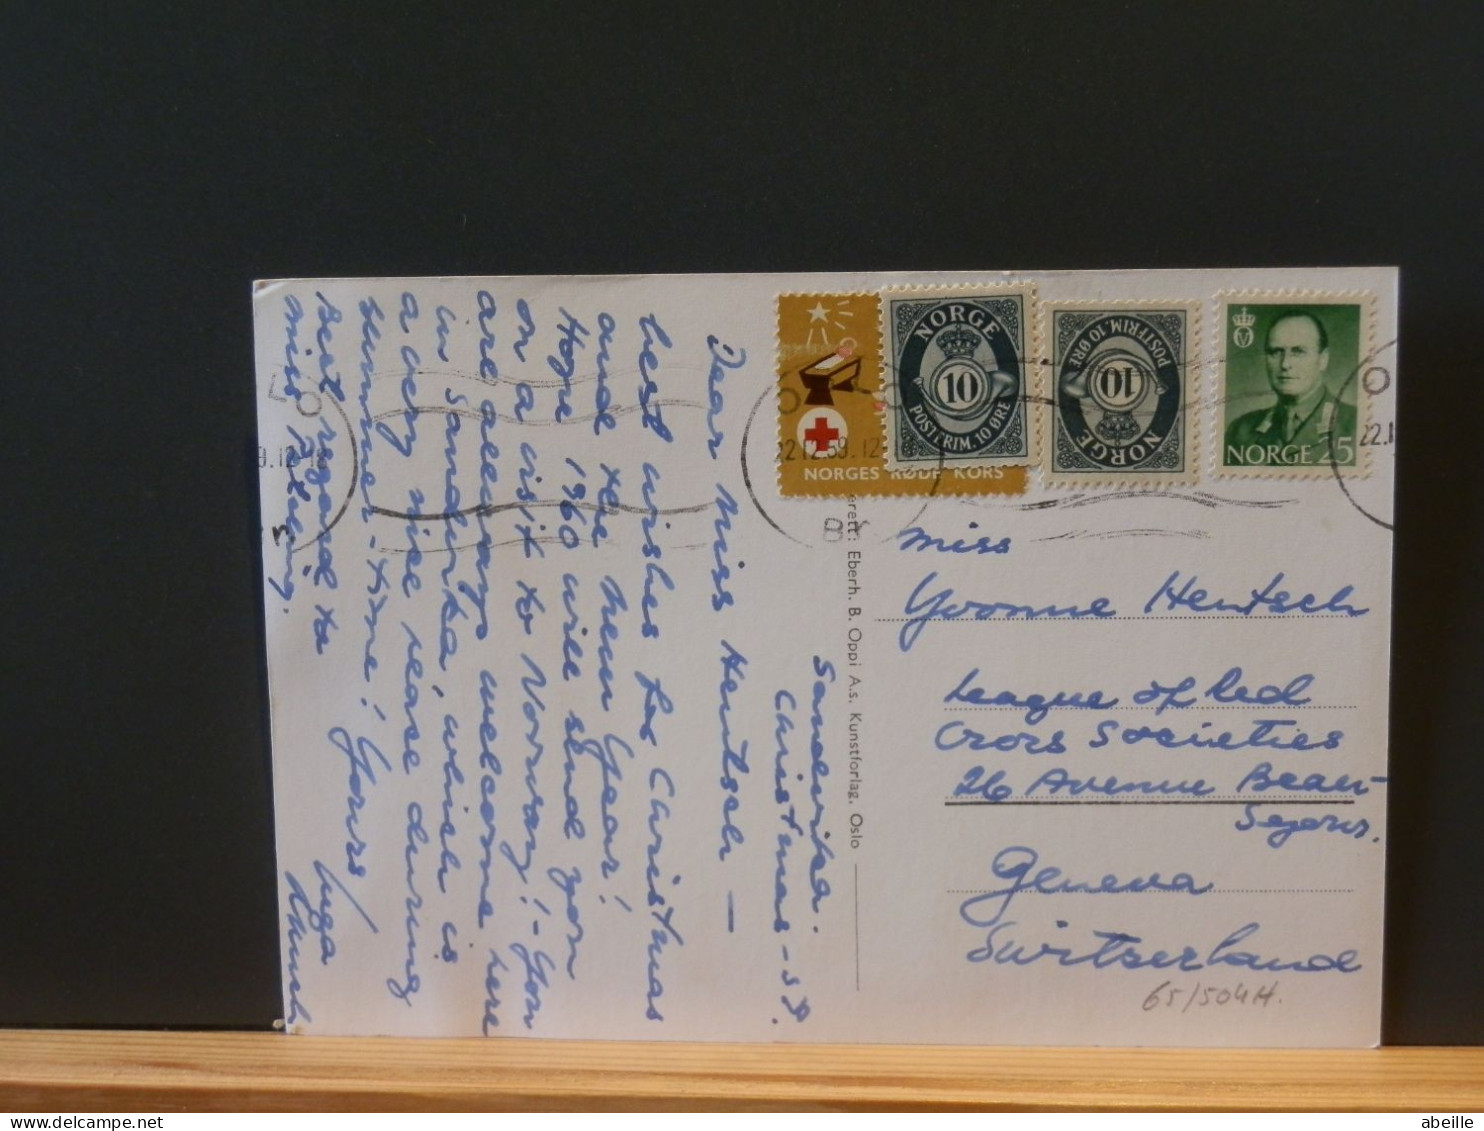 Sandvika.
Christmas - 59.
Dear Miss Hentsch —
best wishes for Christmas
and the New Year!
Hope 1960 will send you
on a visit to Norway! - You
are allways welcome here
in Sandvika, which is
a very nice place during
summer-time! Yours
Best regard to
miss
Inga
erett: Eberh. B. Oppi A.s. Kunstforlag, Oslo
NORGES RØDE KORS
NORGE
10
POSTFRIM. 10 ØRE
NORGE
10
POSTFRIM. 10 ØRE
NORGE 25
22.12.59.12
miss
Yvonne Hentsch
League of Red
Cross Societies
26 Avenue Beau-
Sejour.
Geneva
Switserland
65/504H.
abeille